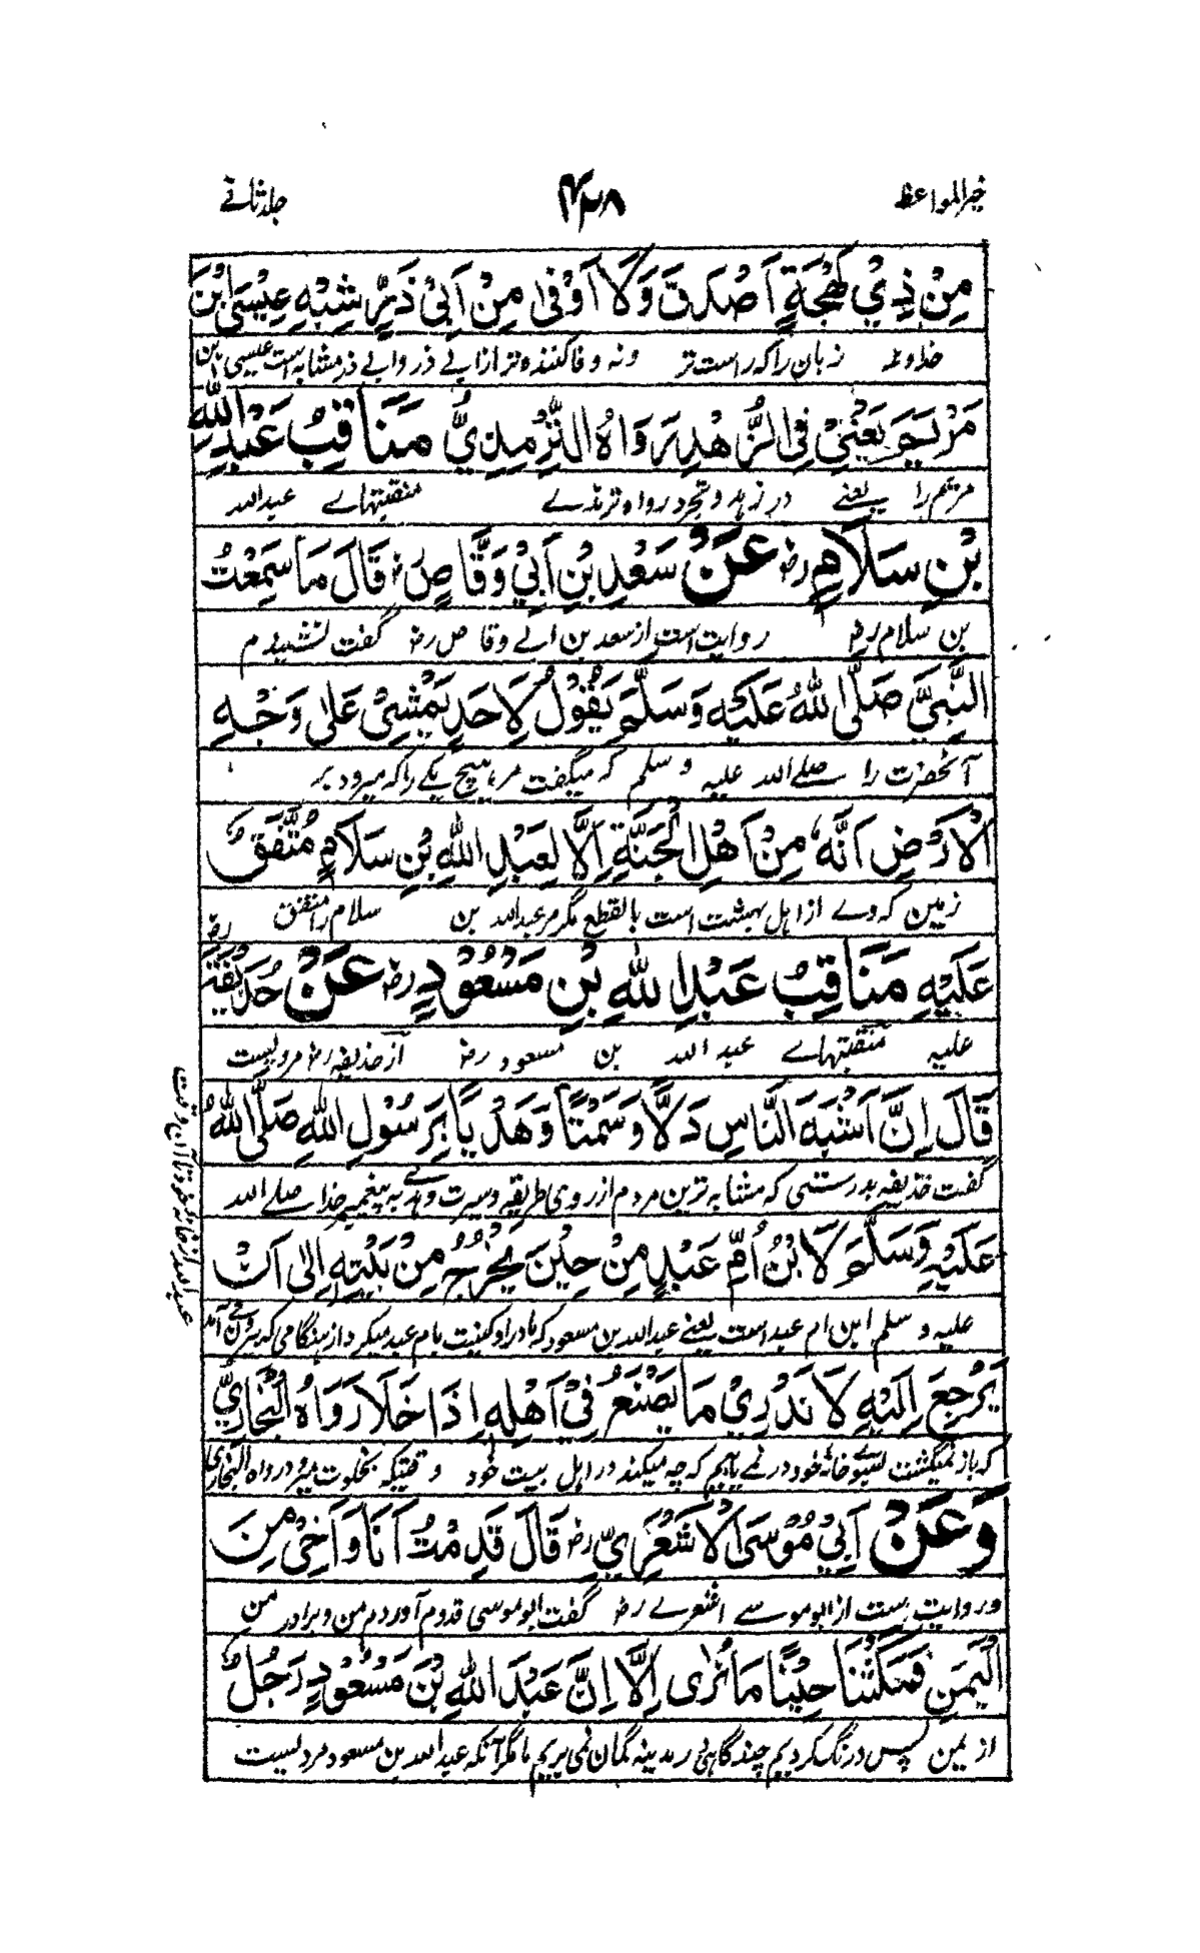 خیر المواعظ ۴۳۸ جلد ثانے
مِنْ ذِيْ لَهْجَةٍ اَصْدَقَ وَلَا اَوْفٰى مِنْ اَبِيْ ذَرٍّ شِبْهِ عِيْسَى ابْنِ
خداوند زبان را که راست تر ونه وفا کننده تر از ابے ذر و ابے ذر مشابه است عیسی ابن
مَرْيَمَ يَعْنِيْ فِي الزُّهْدِ رَوَاهُ التِّرْمِذِيُّ مَنَاقِبُ عَبْدِ اللهِ
مریم را یعنے در زهد و تجرد رواه ترمذے منقبتهاے عبد الله
بْنِ سَلَامٍ رض عَنْ سَعْدِ بْنِ اَبِيْ وَقَّاصٍ رض قَالَ مَا سَمِعْتُ
بن سلام رض روایت است از سعد بن ابے وقاص رض گفت نشنیدم
النَّبِيَّ صَلَّى اللهُ عَلَيْهِ وَسَلَّمَ يَقُوْلُ لِاَحَدٍ يَمْشِيْ عَلٰى وَجْهِ
آنحضرت را صلے الله علیه و سلم که میگفت مر هیچ یکے را که میرود بر
الْاَرْضِ اَنَّهٗ مِنْ اَهْلِ الْجَنَّةِ اِلَّا لِعَبْدِ اللهِ بْنِ سَلَامٍ مُتَّفَقٌ
زمین که وے از اهل بهشت است بالقطع مگر مر عبد الله بن سلام را متفق
عَلَيْهِ مَنَاقِبُ عَبْدِ اللهِ بْنِ مَسْعُوْدٍ رض عَنْ حُذَيْفَةَ رض
علیه منقبتهاے عبد الله بن مسعود رض از حذیفه رض مرویست
قَالَ اِنَّ اَشْبَهَ النَّاسِ دَلًّا وَسَمْتًا وَهَدْيًا بِرَسُوْلِ اللهِ صَلَّى اللهُ
گفت حذیفه بدرستی که مشابه ترین مردم از روی طریقه و سیرت و هدے به پیغمبر خدا صلے الله
عَلَيْهِ وَسَلَّمَ لَابْنُ اُمِّ عَبْدٍ مِنْ حِيْنَ يَخْرُجُ مِنْ بَيْتِهٖ اِلٰى اَنْ
علیه و سلم ابن ام عبد است یعنے عبد الله بن مسعود که مادر او کنیت بام عبد میکرد از هنگامی که بیرون مے آمد
يَرْجِعَ اِلَيْهِ لَا نَدْرِيْ مَا يَصْنَعُ فِيْ اَهْلِهٖ اِذَا خَلَا رَوَاهُ الْبُخَارِيُّ
که باز میگشت بسوے خانه خود در نمے یابیم که چه میکند در اهل بیت خود وقتیکه بخلوت میرود رواه البخاری
وَعَنْ اَبِيْ مُوْسَى الْاَشْعَرِيِّ رض قَالَ قَدِمْتُ اَنَا وَاَخِيْ مِنَ
و روایت ست از ابو موسے اشعرے رض گفت ابو موسی قدوم آوردم من و برادر من
الْيَمَنِ فَمَكَثْنَا حِيْنًا مَا نُرٰى اِلَّا اَنَّ عَبْدَ اللهِ بْنَ مَسْعُوْدٍ رَجُلٌ
از یمن پس درنگ کردیم چند گاهی در مدینه گمان نمی بریم ما مگر آنکه عبد الله بن مسعود مردیست